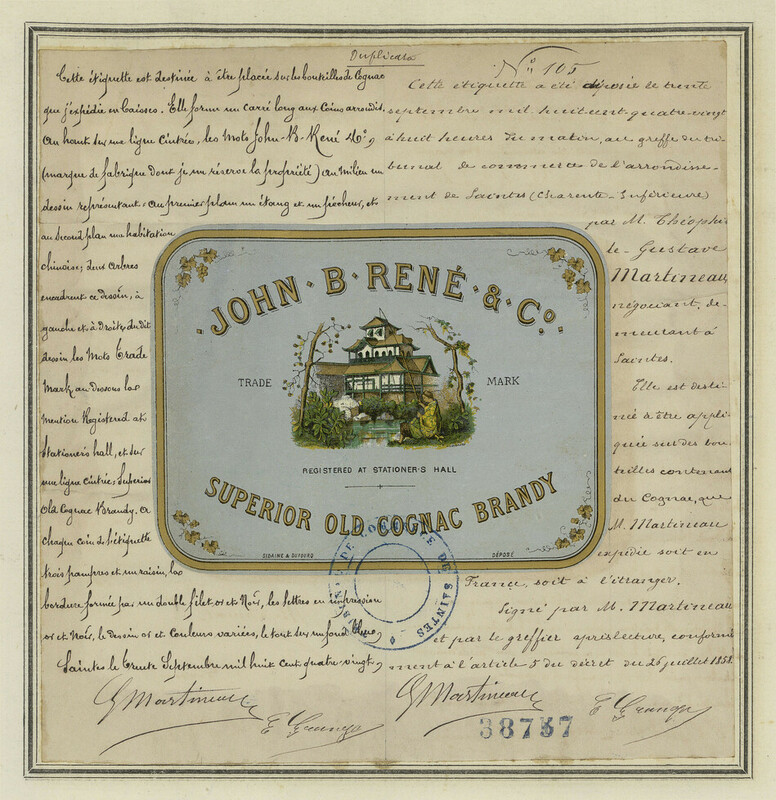 Duplicata
Cette étiquette est destinée à être placée sur les bouteilles de Cognac
que j'expédie en caisses. Elle forme un carré long aux coins arrondis,
en haut sur une ligne cintrée, les Mots John-B-René & Co,
(marque de fabrique dont je me réserve la propriété) au milieu un
dessin représentant: au premier plan un étang et un pêcheur, et
au second plan une habitation
chinoise; deux arbres
encadrent ce dessin; à
gauche et à droite, du dit
dessin les Mots Trade
Mark, au-dessous la
mention Registered at
Stationer's hall, et sur
une ligne cintrée; Superior
Old Cognac Brandy. à
chaque coin de l'étiquette
trois pampres et un raisin, la
bordure formée par un double filet, or et Noir, les lettres en impression
or et Noir, le dessin or et couleurs variées, le tout sur un fond bleu,
Saintes le trente Septembre mil huit cent quatre-vingt,
G Martineau
E Grange
No 105
Cette étiquette a été déposée le trente
septembre mil huit-cent-quatre-vingt
à huit heures du matin, au greffe du tri-
bunal de commerce de l'arrondisse-
ment de Saintes (Charente-Inférieure)
par M. Théophi-
le-Gustave
Martineau,
négociant, de-
meurant à
Saintes.
Elle est desti-
née à être appli-
quée sur des bou-
teilles contenant
du Cognac, que
M. Martineau
expédie soit en
France, soit à l'étranger.
Signé par M. Martineau
et par le greffier après lecture, conformé-
ment à l'article 5 du décret du 26 juillet 1858.
G Martineau
E Grange
38757
JOHN·B·RENÉ·&·Co.
TRADE MARK
REGISTERED AT STATIONER'S HALL
SUPERIOR OLD COGNAC BRANDY
DÉPOSÉ
DE COMMERCE DE SAINTES